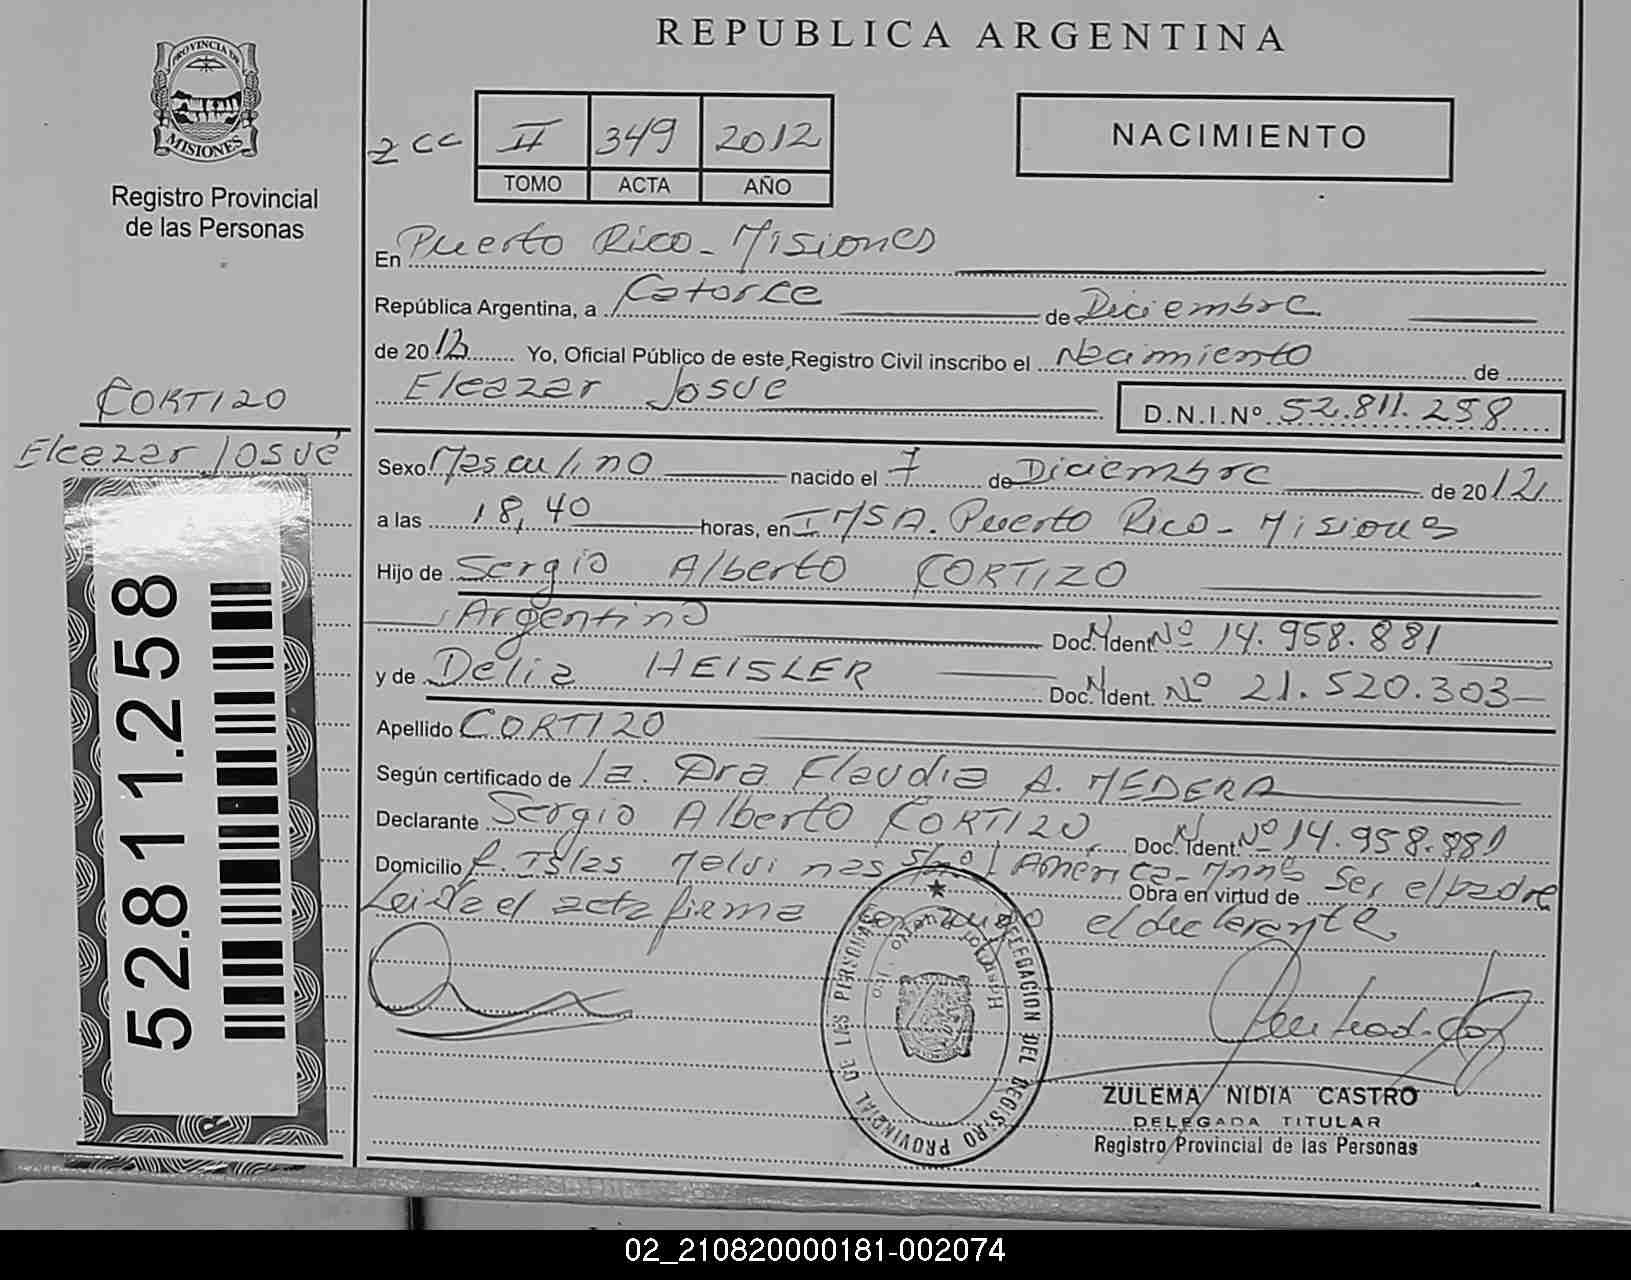 REPUBLICA ARGENTINA
PROVINCIA DE
MISIONES
Registro Provincial
de las Personas
2 cc
II 349 2012
TOMO ACTA AÑO
NACIMIENTO
En Puerto Rico - Misiones
República Argentina, a Catorce de Diciembre
de 2012 Yo, Oficial Público de este Registro Civil inscribo el Nacimiento de
Eleazar Josué D.N.I.Nº 52.811.258
CORTIZO
Eleazar Josué
Sexo Masculino nacido el 7 de Diciembre de 2012
a las 18,40 horas, en IMSA. Puerto Rico - Misiones
Hijo de Sergio Alberto CORTIZO
Argentino Doc. Ident. Nº 14.958.881
y de Delia HEISLER Doc. Ident. Nº 21.520.303
Apellido CORTIZO
Según certificado de la. Dra. Claudia A. MEDERA
Declarante Sergio Alberto CORTIZO, Doc. Ident. Nº 14.958.881
Domicilio Islas Malvinas S/nº América - Obra en virtud de Ser el padre
Leída el acta firma el declarante.
52.811.258
DELEGACION DEL REGISTRO PROVINCIAL DE LAS PERSONAS
ZULEMA NIDIA CASTRO
DELEGADA TITULAR
Registro Provincial de las Personas
02_210820000181-002074